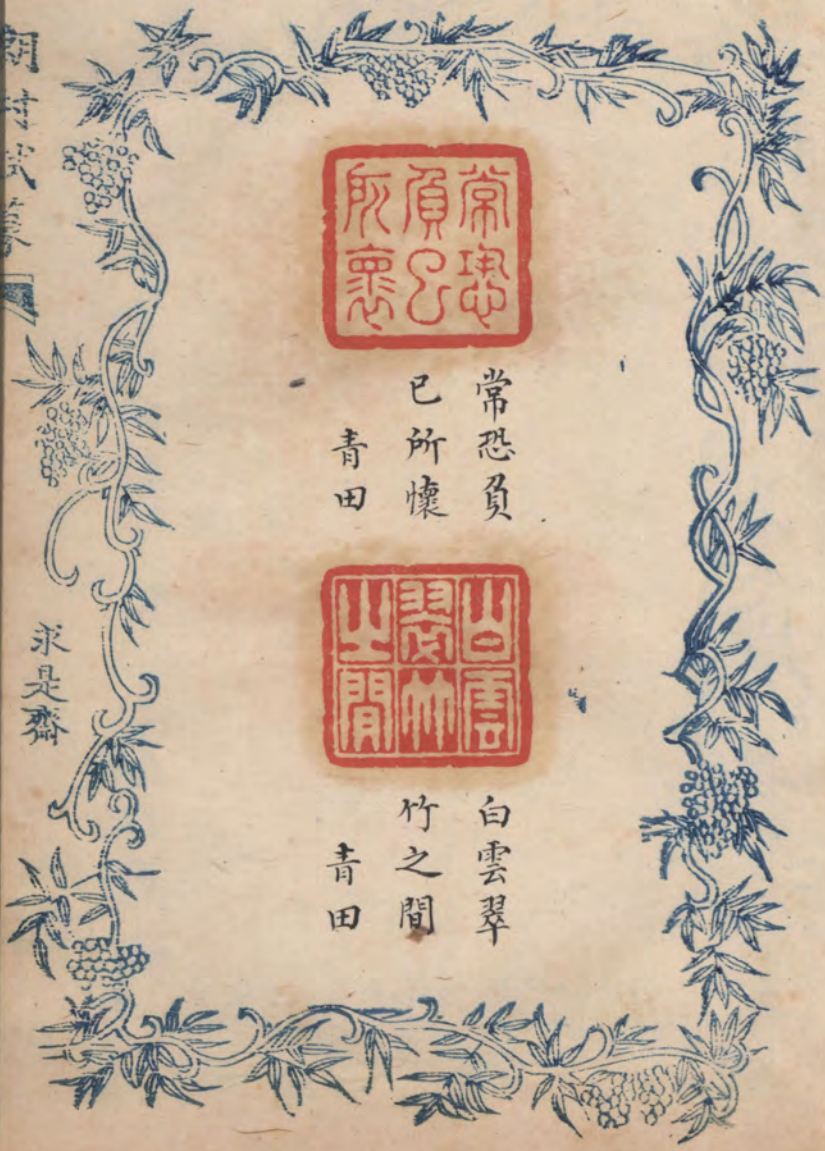 常恐
負己
所懷
常恐負
已所懷
青田
白雲
翠竹
之間
白雲翠
竹之間
青田
求是齋